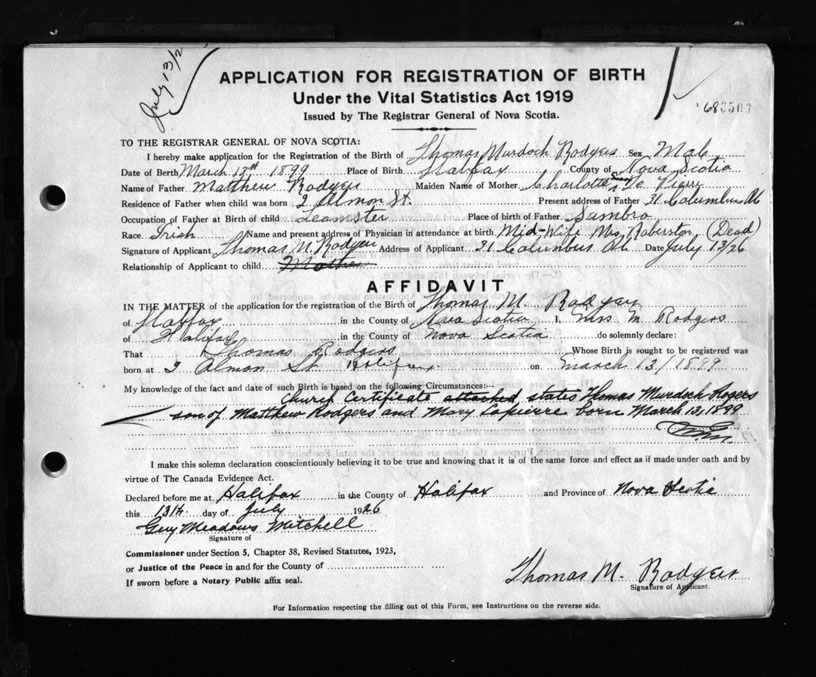 July 13/2
APPLICATION FOR REGISTRATION OF BIRTH
Under the Vital Statistics Act 1919
Issued by The Registrar General of Nova Scotia.
TO THE REGISTRAR GENERAL OF NOVA SCOTIA:
I hereby make application for the Registration of the Birth of Thomas Murdoch Rodgers Sex Male
Date of Birth March 13th 1899 Place of Birth Halifax County of Nova Scotia
Name of Father Matthew Rodgers Maiden Name of Mother Charlotte
Residence of Father when child was born 2 Almon St. Present address of Father 31 Columbus
Occupation of Father at Birth of child Teamster Place of birth of Father Sambro
Race Irish Name and present address of Physician in attendance at birth Mid-Wife Mrs. (Dead)
Signature of Applicant Thomas M. Rodgers Address of Applicant 31 Columbus Date July 13/26
Relationship of Applicant to child Mother
AFFIDAVIT
IN THE MATTER of the application for the registration of the Birth of Thomas M. Rodgers
of Halifax in the County of Nova Scotia I, Mrs M Rodgers
of Halifax in the County of Nova Scotia do solemnly declare:
That Thomas Rodgers Whose Birth is sought to be registered was
born at 2 Almon St Halifax on March 13/1899
My knowledge of the fact and date of such Birth is based on the following Circumstances:-
Church Certificate attached states Thomas Murdoch Rogers
son of Matthew Rodgers and Mary Lapierre born March 13, 1899
I make this solemn declaration conscientiously believing it to be true and knowing that it is of the same force and effect as if made under oath and by
virtue of The Canada Evidence Act.
Declared before me at Halifax in the County of Halifax and Province of Nova Scotia
this 13th day of July 1926
Guy Meadows Mitchell
Signature of
Commissioner under Section 5, Chapter 38, Revised Statutes, 1923,
or Justice of the Peace in and for the County of
If sworn before a Notary Public affix seal.
Thomas M. Rodgers
Signature of Applicant.
For Information respecting the filling out of this Form, see Instructions on the reverse side.